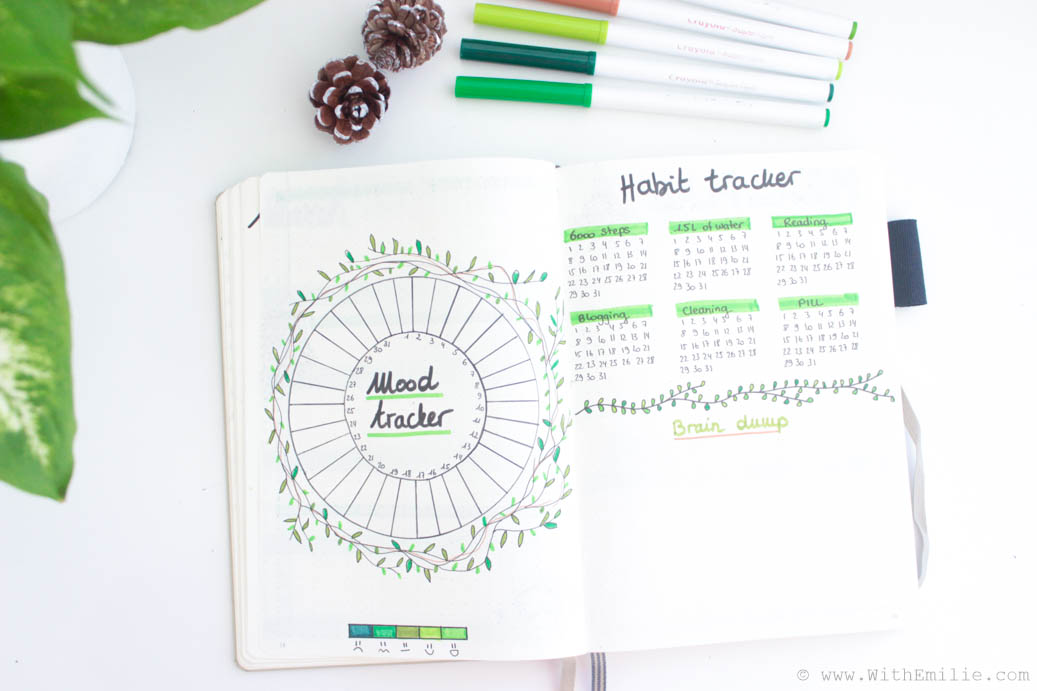 Crayola
Crayola
Crayola
Mood
tracker
1 2 3 4 5 6 7 8 9 10 11 12 13 14 15 16 17 18 19 20 21 22 23 24 25 26 27 28 29 30 31
Habit tracker
6000 steps
1 2 3 4 5 6 7
8 9 10 11 12 13 14
15 16 17 18 19 20 21
22 23 24 25 26 27 28
29 30 31
1.5L of water
1 2 3 4 5 6 7
8 9 10 11 12 13 14
15 16 17 18 19 20 21
22 23 24 25 26 27 28
29 30 31
Reading
1 2 3 4 5 6 7
8 9 10 11 12 13 14
15 16 17 18 19 20 21
22 23 24 25 26 27 28
29 30 31
Blogging
1 2 3 4 5 6 7
8 9 10 11 12 13 14
15 16 17 18 19 20 21
22 23 24 25 26 27 28
29 30 31
Cleaning
1 2 3 4 5 6 7
8 9 10 11 12 13 14
15 16 17 18 19 20 21
22 23 24 25 26 27 28
29 30 31
PILL
1 2 3 4 5 6 7
8 9 10 11 12 13 14
15 16 17 18 19 20 21
22 23 24 25 26 27 28
29 30 31
Brain dump
© www.WithEmilie.com